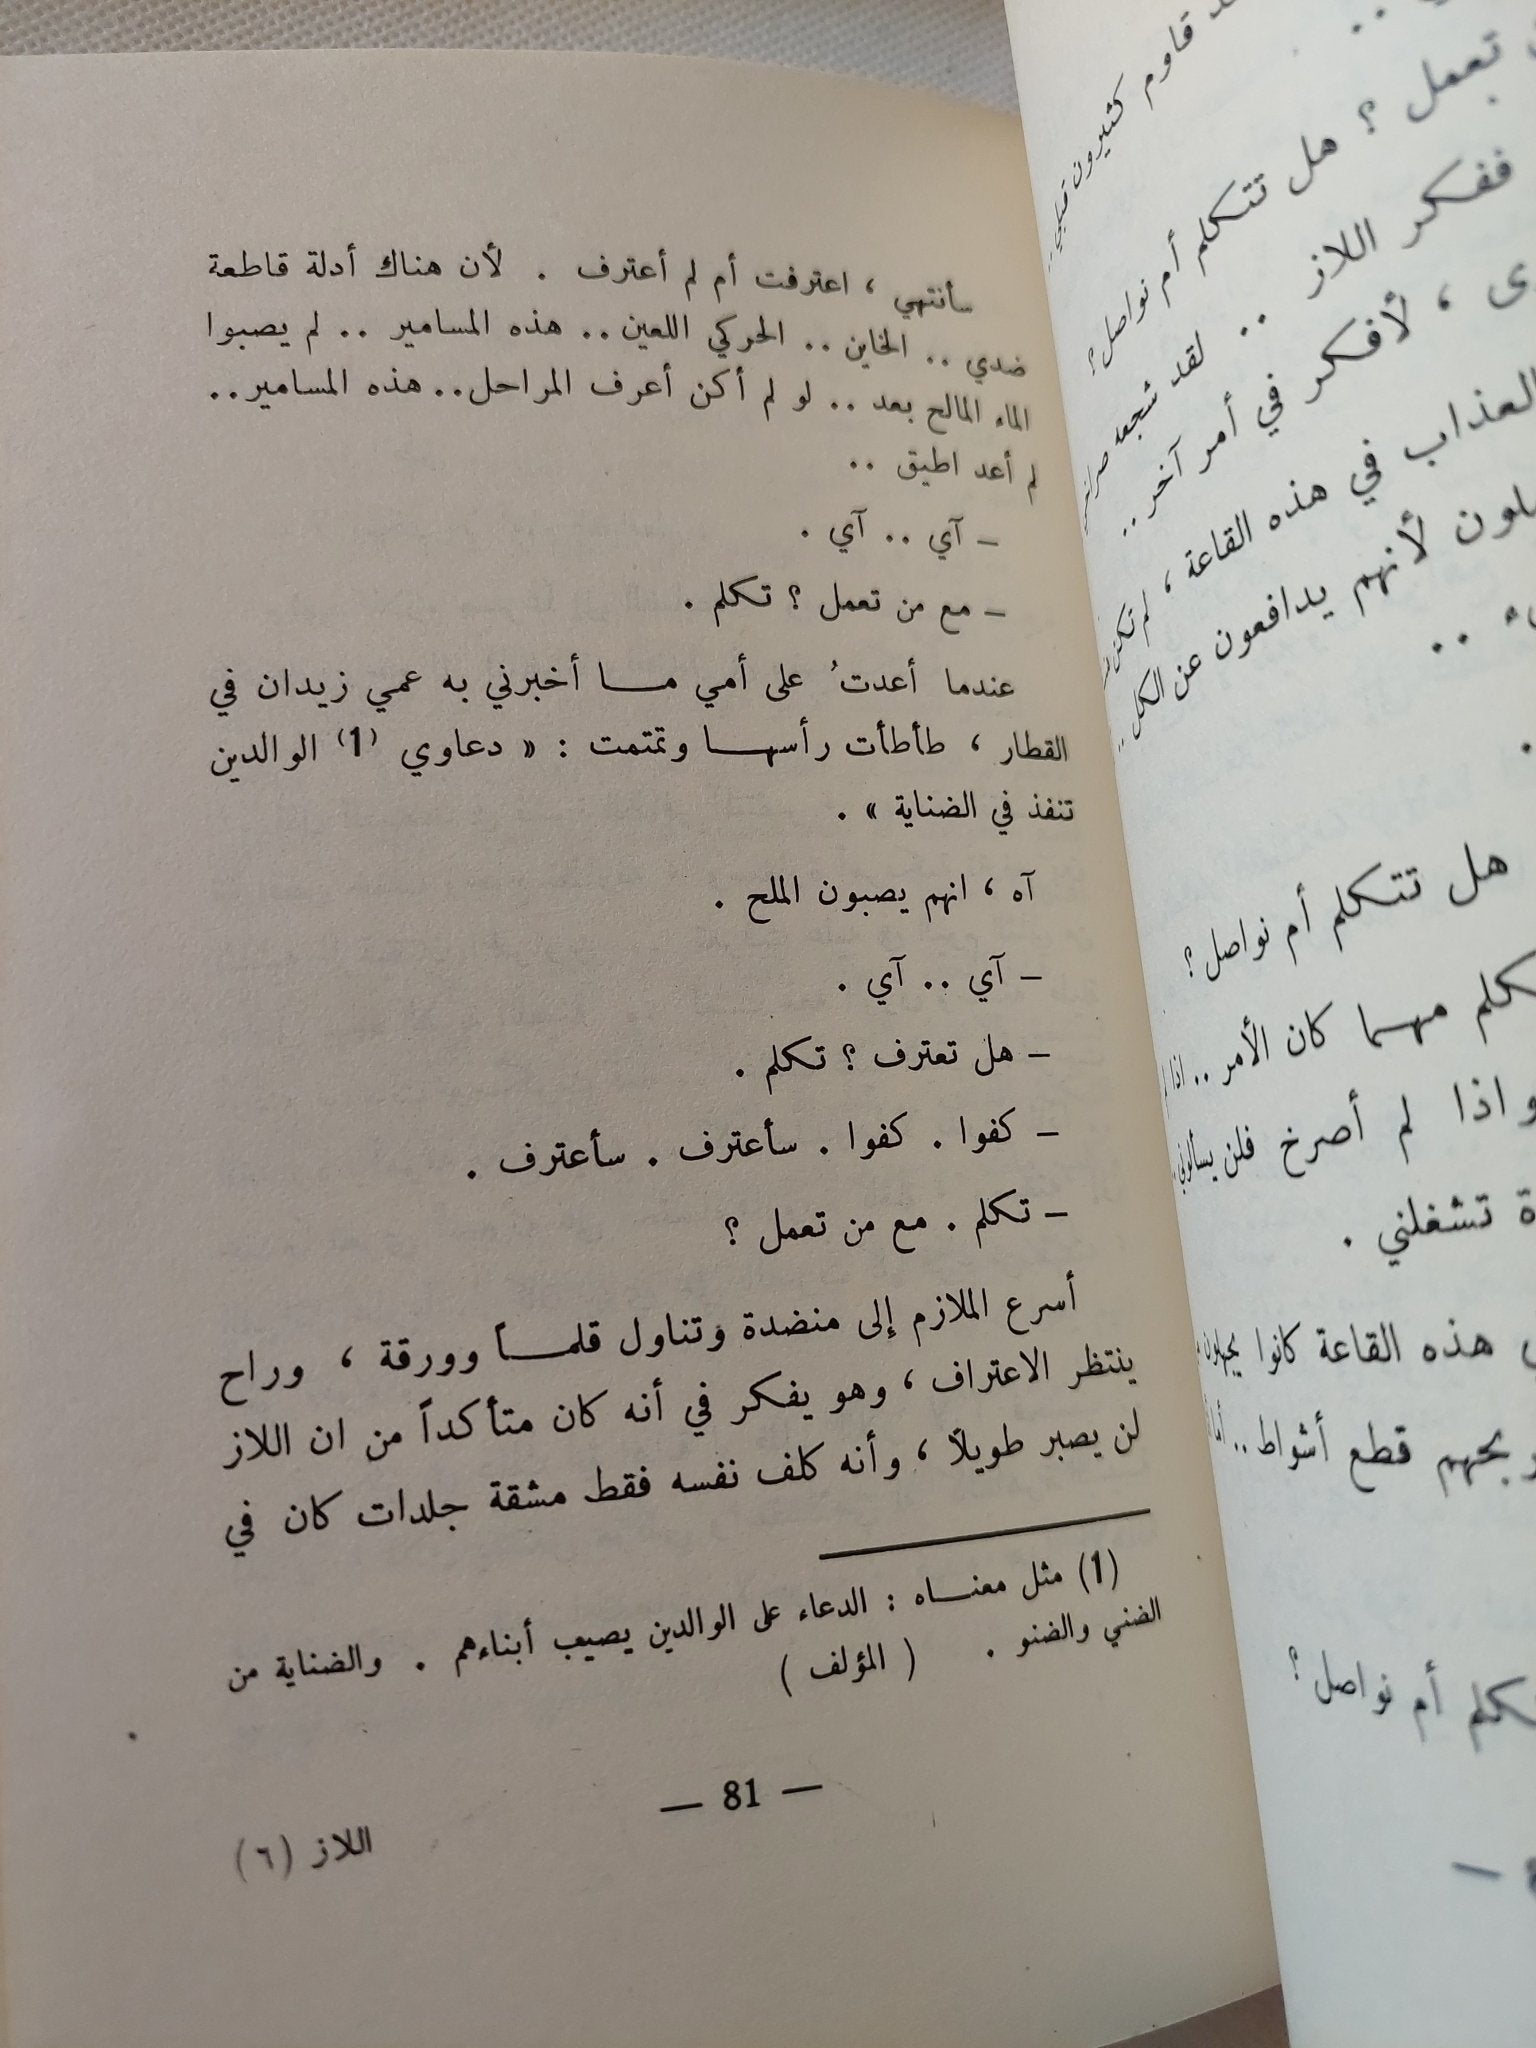 سأنتهي ، اعترفت أم لم أعترف . لأن هناك أدلة قاطعة
ضدي .. الخاين .. الحركي اللعين .. هذه المسامير .. لم يصبوا
الماء المالح بعد .. لو لم أكن أعرف المراحل .. هذه المسامير ..
لم أعد اطيق ..
– آي .. آي .
– مع من تعمل ؟ تكلم .
عندما أعدتُ على أمي مـــا أخبرني به عمي زيدان في
القطار ، طأطأت رأسهـــا وتمتمت : « دعاوي (1) الوالدين
تنفذ في الضناية » .
آه ، انهم يصبون الملح .
– آي .. آي .
– هل تعترف ؟ تكلم .
– كفوا . كفوا . سأعترف . سأعترف .
– تكلم . مع من تعمل ؟
أسرع الملازم إلى منضدة وتناول قلمـــاً وورقة ، وراح
ينتظر الاعتراف ، وهو يفكر في أنه كان متأكداً من ان اللاز
لن يصبر طويلاً ، وأنه كلف نفسه فقط مشقة جلدات كان في
(1) مثل معنـــاه : الدعاء على الوالدين يصيب أبناءهم . والضناية من
الضني والضنو . ( المؤلف )
— 81 —
اللاز (٦)
قاوم كثيرون قبلي ..
تعمل ؟ هل تتكلم أم نواصل ؟
ففكر اللاز .. لقد شجعه
، لأفكر في أمر آخر ..
العذاب في هذه القاعة ، لم تكن
لأنهم يدافعون عن الكل ..
هل تتكلم أم نواصل ؟
مهـما كان الأمر .. اذا
واذا لم أصرخ فلن يسألوني
تشغلني .
هذه القاعة كانوا يجهلون
قطع أشواط ..
أم نواصل ؟